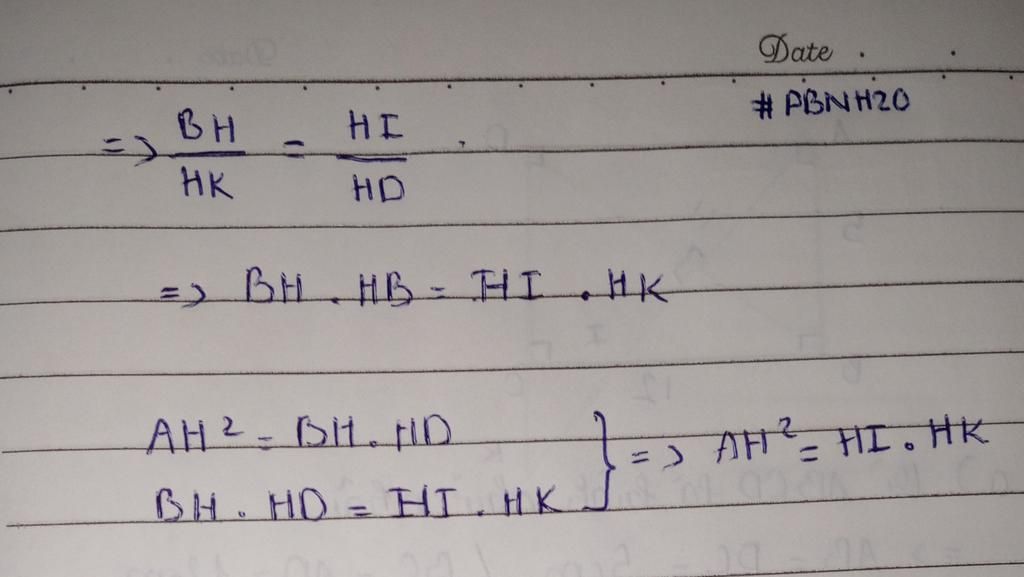 Date
#PBNH20
=> BH/HK = HI/HD .
=> BH . HB = HI . HK
AH² = BH . HD
BH . HD = HI . HK } => AH² = HI . HK